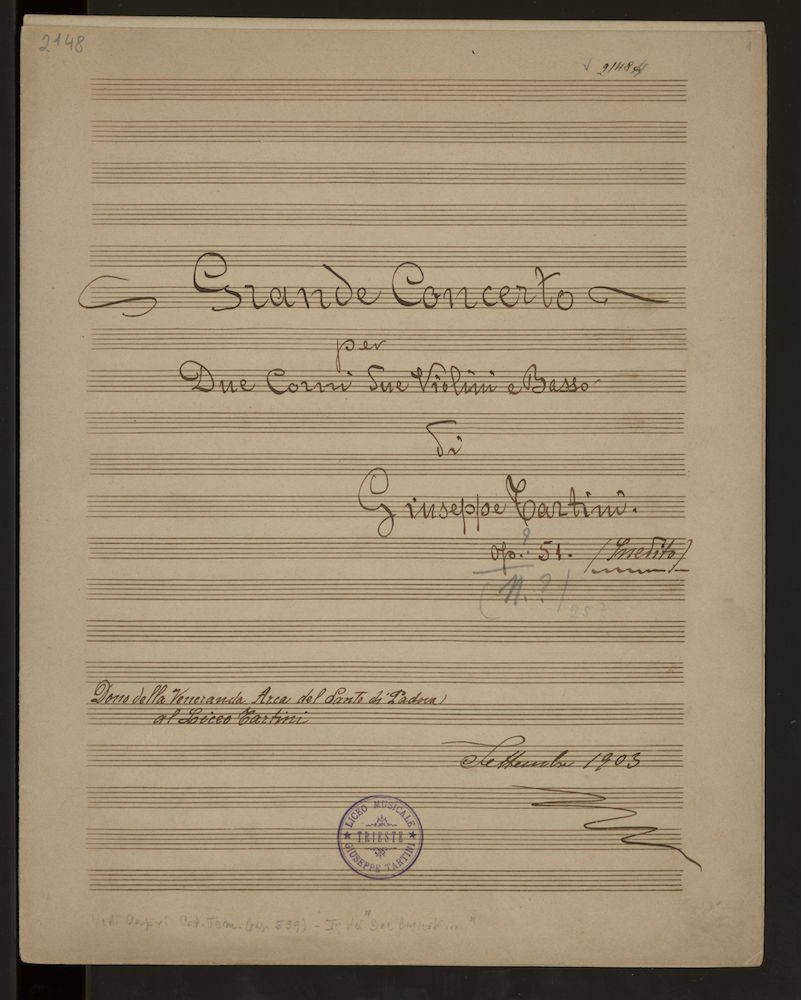 2148
1
2148
Grande Concerto
per
Due Corni due Violini e Basso
di
Giuseppe Tartini.
?
op. 51. (Inedito)
(N. ?) 25?
Dono della Veneranda Arca del Santo di Padova
al Liceo Tartini
Settembre 1903
LICEO MUSICALE
TRIESTE
GIUSEPPE TARTINI
Vedi Capri Cat. Tem. (pag. 539) - "Due